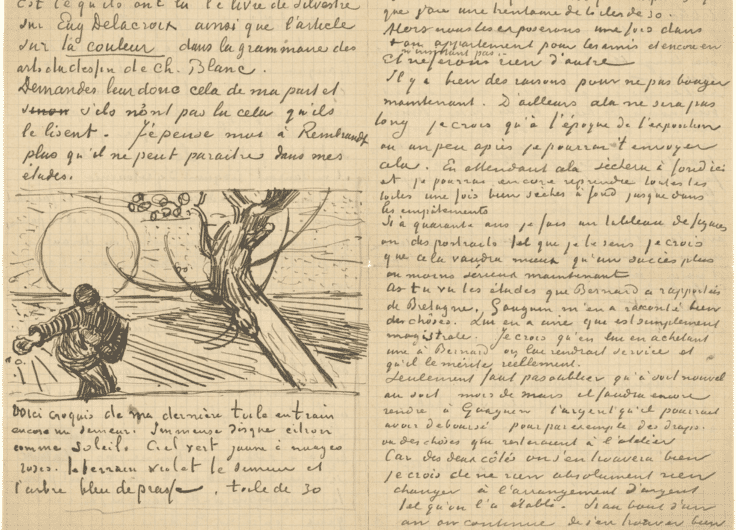 est ce qu'ils ont lu le livre de Silvestre
sur Eug Delacroix ainsi que l'article
sur la couleur dans la grammaire des
arts du dessin de Ch. Blanc.
Demandes leur donc cela de ma part et
sinon s'ils n'ont pas lu cela qu'ils
le lisent. J'e pense moi à Rembrandt
plus qu'il ne peut paraitre dans mes
études.
Voici croquis de ma dernière toile en train
encore un semeur. Immense disque citron
comme soleil. Ciel vert jaune à nuages
roses. le terrain violet le semeur et
l'arbre bleu de prusse. toile de 30
que j'aie une trentaine de toiles de 30.
Alors nous les exposerons une fois dans
ton appartement pour les amis et encore en
n'insistant pas.
et ne ferons rien d'autre
Il y a bien des raisons pour ne pas bouger
maintenant. D'ailleurs cela ne sera pas
long je crois qu'à l'époque de l'exposition
ou un peu après je pourrai t'envoyer
cela. En attendant cela sèchera à fond ici
et je pourrai encore reprendre toutes les
toiles une fois bien sèches à fond jusque dans
les empâtements
Si à quarante ans je fais un tableau de figures
ou des portraits tel que je le sens je crois
que cela vaudra mieux qu'un succès plus
ou moins sérieux maintenant
As tu vu les études que Bernard a rapportés
de Bretagne, Gauguin m'en a raconté bien
des choses. Lui en a une que est simplement
magistrale. Je crois qu'en lui en achetant
une à Bernard on lui rendrait service et
qu'il le mérite réellement.
Seulement faut pas oublier qu'à soit nouvel
an soit mois de mars il faudra encore
rendre à Gauguin l'argent qu'il pourrait
avoir deboursé pour par exemple des draps.
ou des choses que resteraient à l'atelier
Car des deux côtés on s'en trouvera bien
je crois de ne rien absolument rien
changer à l'arrangement d'argent
tel qu'on l'a établi. Si au bout d'un
an on continue de s'en trouver bien